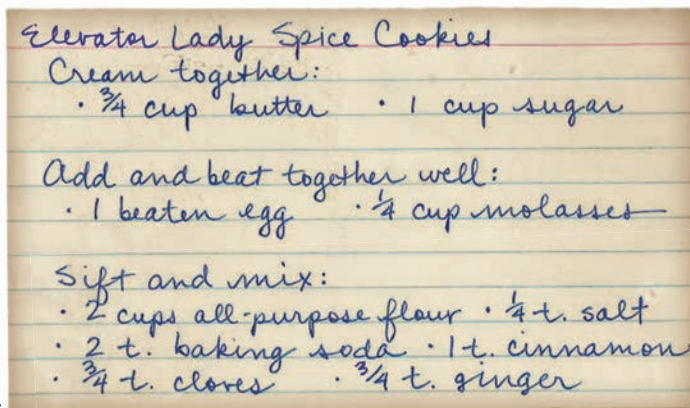 Elevator Lady Spice Cookies
Cream together:
· 3/4 cup butter · 1 cup sugar
Add and beat together well:
· 1 beaten egg · 1/4 cup molasses
Sift and mix:
· 2 cups all-purpose flour · 1/4 t. salt
· 2 t. baking soda · 1 t. cinnamon
· 3/4 t. cloves · 3/4 t. ginger